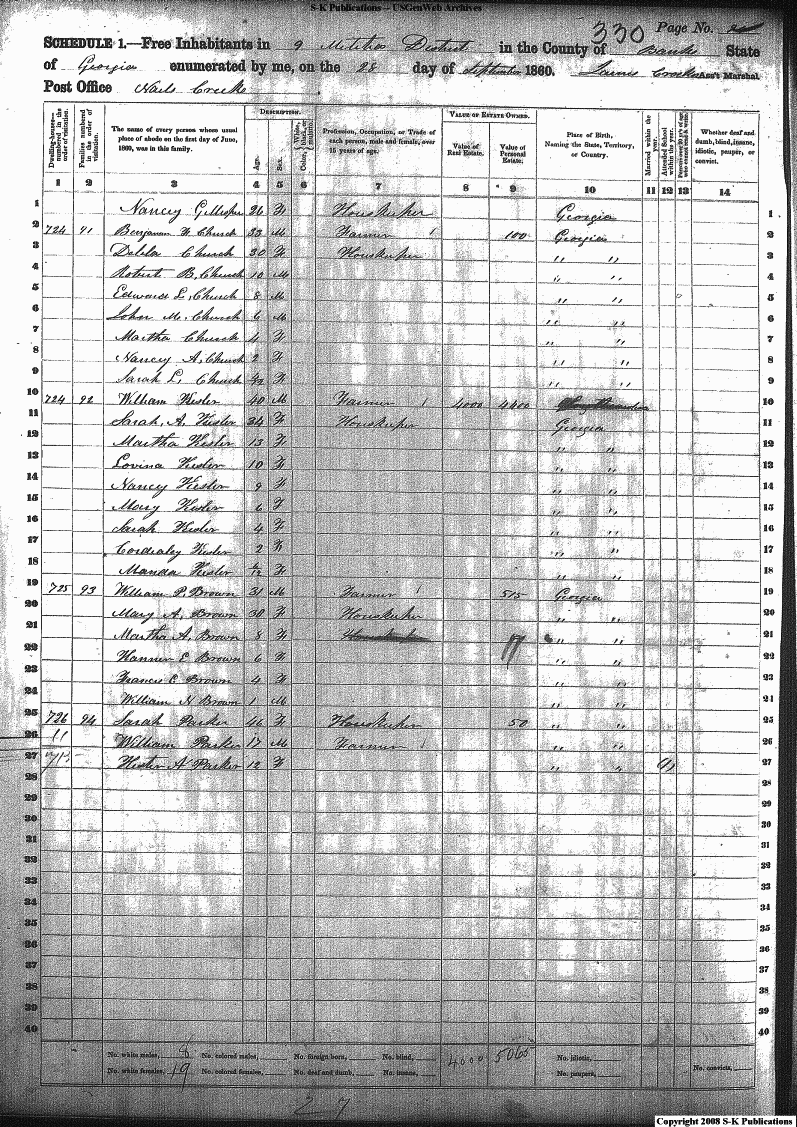 S-K Publications -- USGenWeb Archives
330 Page No.
SCHEDULE 1.—Free Inhabitants in 9 Militia District in the County of Banks State
of Georgia enumerated by me, on the 28 day of September 1860. Ass't Marshal
Post Office Nails Creek
Dwelling-houses—numbered in the order of visitation.
Families numbered in the order of visitation.
The name of every person whose usual place of abode on the first day of June, 1860, was in this family.
DESCRIPTION.
Age.
Sex.
Color, White, black, or mulatto.
Profession, Occupation, or Trade of each person, male and female, over 15 years of age.
VALUE OF ESTATE OWNED.
Value of Real Estate.
Value of Personal Estate.
Place of Birth, Naming the State, Territory, or Country.
Married within the year.
Attended School within the year.
Persons over 20 y'rs of age who cannot read & write.
Whether deaf and dumb, blind, insane, idiotic, pauper, or convict.
1 2 3 4 5 6 7 8 9 10 11 12 13 14
1 Nancy 26 F Houskeeper Georgia 1
2 724 91 Benjamin F. Church 33 M Farmer 1 100 Georgia 2
3 Delila Church 30 F Houskeeper " " 3
4 Robert B, Church 10 M " " 4
5 Edward L, Church 8 M " " 5
6 John M. Church 6 M " " 6
7 Martha Church 4 F " " 7
8 Nancy A, Church 2 F " " 8
9 Sarah L, Church F " " 9
10 724 92 William Kesler 40 M Farmer 1 4000 4400 10
11 Sarah, A, Kesler 34 F Houskeeper Georgia 11
12 Martha Kesler 13 F " " 12
13 Lovina Kesler 10 F " " 13
14 Nancy Kesler 9 F " " 14
15 Mary Kesler 6 F " " 15
16 Sarah Kesler 4 F " " 16
17 Cordealey Kesler 2 F " " 17
18 Manda Kesler F " " 18
19 725 93 William P. Brown 31 M Farmer 1 515 Georgia 19
20 Mary A, Brown 30 F Houskeeper " " 20
21 Martha A, Brown 8 F Houskeeper " " 21
22 Hanner E Brown 6 F " " 22
23 Frances E Brown 4 F " " 23
24 William H Brown 1 M 24
25 726 94 Sarah Parker 46 F Houskeeper 50 " " 25
26 William Parker 17 M Farmer 1 " " 26
27 Hester A Parker 12 F " " 27
28 28
29 29
30 30
31 31
32 32
33 33
34 34
35 35
36 36
37 37
38 38
39 39
40 40
No. white males, 8 No. colored males, No. foreign born, No. blind, 4000 5065 No. idiotic,
No. white females, 19 No. colored females, No. deaf and dumb, No. insane, No. paupers, No. convicts,
27
Copyright 2008 S-K Publications